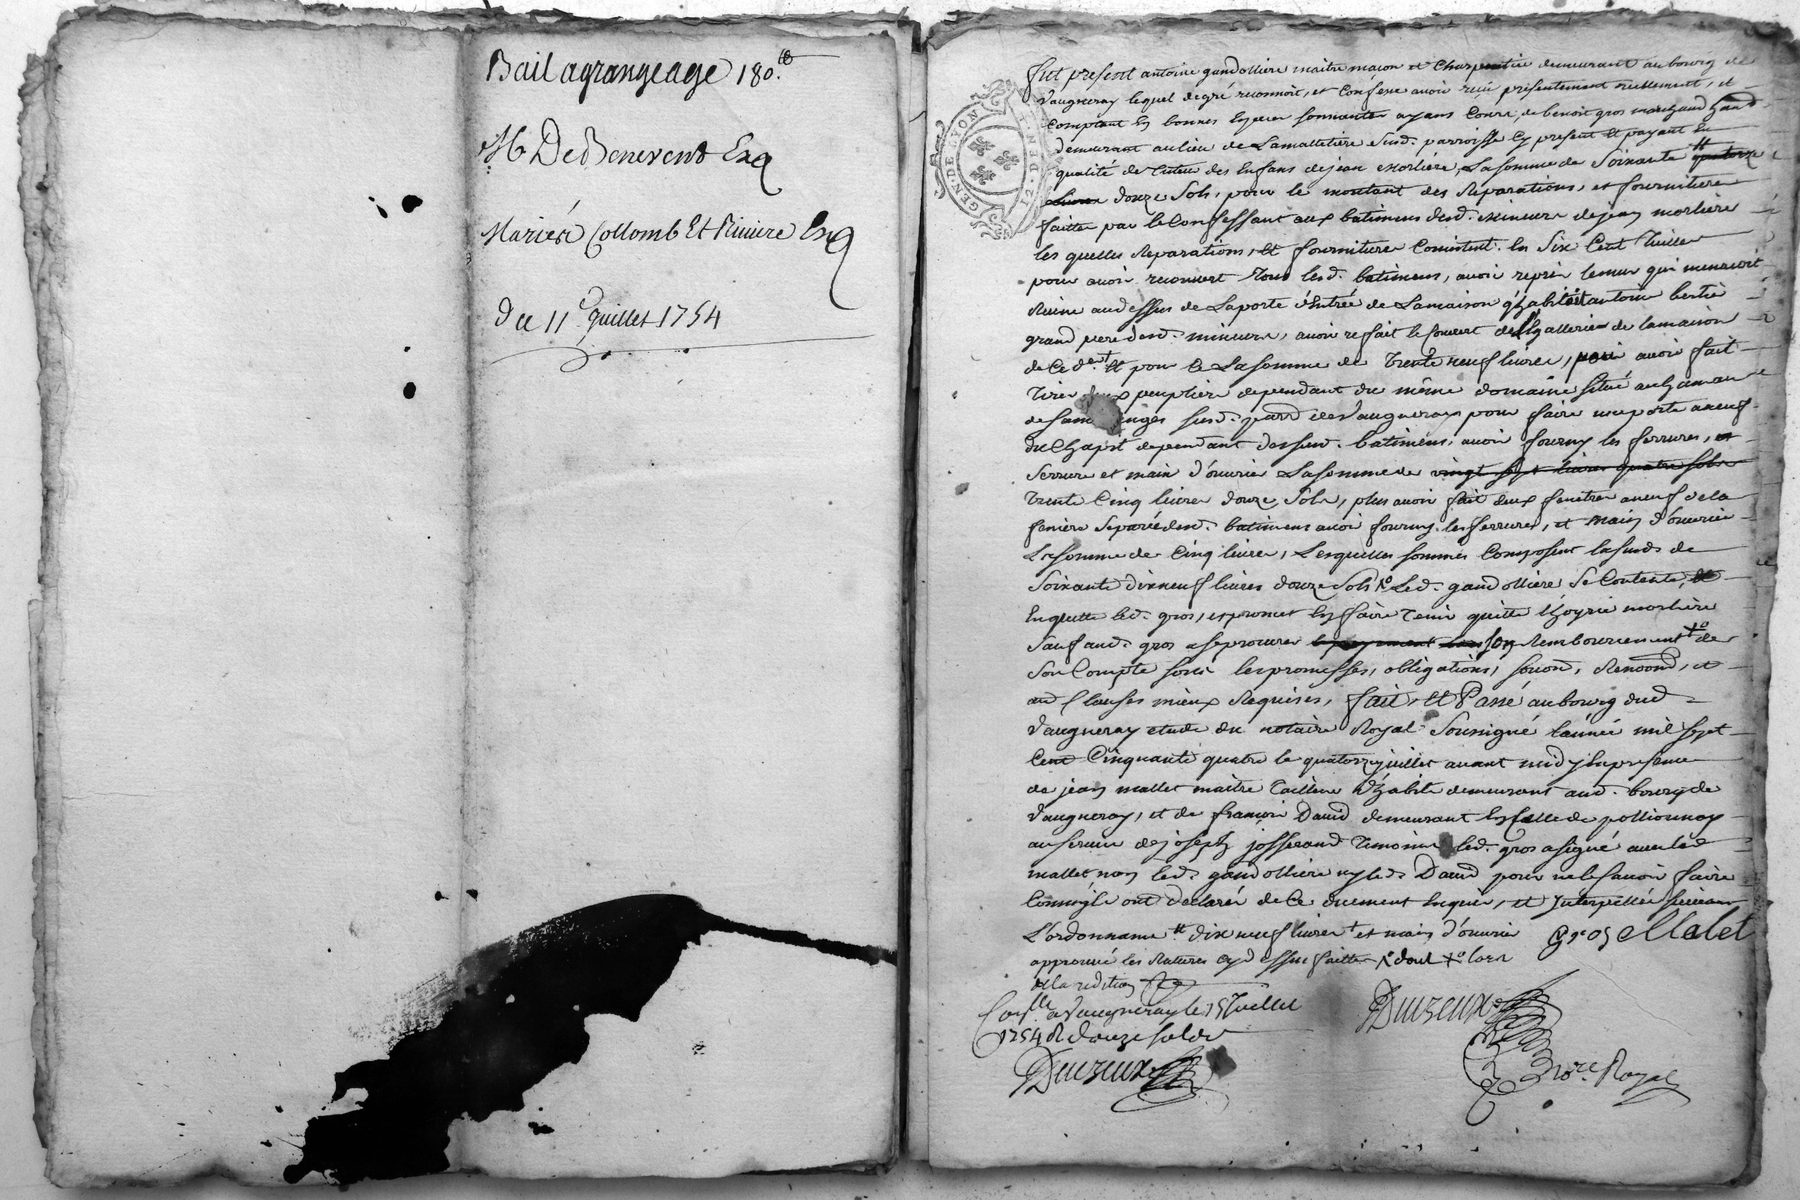 Bail agrangeage 180.tt
Mr De Benevend Esq
Mariési Collomb Et Riviere Esq
du 11e juillet 1754
GEN. DE LYON
12. DEN. I
fut present antoine gandolliere maitre macon et Charpentier demeurant au bourg de
Vaugneray lequel de gré reconnoit, et Confesse avoir reçu présentement reellement, et
Comptant En bonnes Especes sonnantes ayans Cours, de benoit gros marchand
demeurant au lieu de Lamalletiere Susd. parroisse Cy present Et payant En
qualité de tuteur des Enfans de jean morliere, La somme de Soixante
douze Sols, pour le montant des Reparations, et fournitures
faittes par le Confessant aux batimens desd. mineurs de jean morliere
les quelles Reparations, Et fournitures Consistent En Six Cent Tuilles
pour avoir recouvert Tous lesd. batimens, avoir repris le mur qui menacoit
Ruine au dessus de La porte d'Entrée de La maison antoine bertié
grand pere desd. mineurs, avoir refait le Couvert de la gallerie de la maison
de Ced. Et pour Ce La somme de Trente neuf livres, pour avoir fait
Tirer peuplier dependant du même domaine situé au hameau
de susd. parr. de Vaugneray pour faire une porte a neuf
du Chapit dependant desd. batimens, avoir fourny les ferrures,
Serrure et main d'ouvrier La somme de vingt sept livres quatre sols
Trente Cinq livres douze Sols, plus avoir fait deux fenetres a neuf de la
feniere Separée desd. batimens avoir fourny les ferrures, et main d'ouvrier
La somme de Cinq livres, Lesquelles sommes Composent la susd. de
Soixante dix neuf livres douze Sols Led. gandolliere Se Contente,
En quitte led. gros, et promet En faire Tenir quitte l'hoyrie morliere
Sauf aud. gros a se procurer le payement son Remboursement de
Son Compte sous les promesses, obligations, soumd, Renoond, et
aud Clauses mieux Requises, fait, Et Passé au bourg dud
Vaugneray etude du notaire Royal Soussigné l'année mil sept
Cent Cinquante quatre le quatorze juillet avant midy En presence
de jean mallet maitre Tailleur d'habits demeurant aud. bourg de
Vaugneray, et de francois David demeurant En Celle de pollionnay
au service de joseph josserand Temoins led. gros a signé avec led
mallet non led. gandolliere ny led. David pour ne le savoir faire
Comme ils ont declaré de Ce duement Enquis, et Interpellés suivant
L'ordonnance tt dix neuf livres + et main d'ouvrier Gros Malet
approuvé les Ratures Cy dessus faittes dont lors
de la redition
Conlle a Vaugneray le 15 Juillet
1754 R douze sols
Duizeux
Duizeux
nore Royal